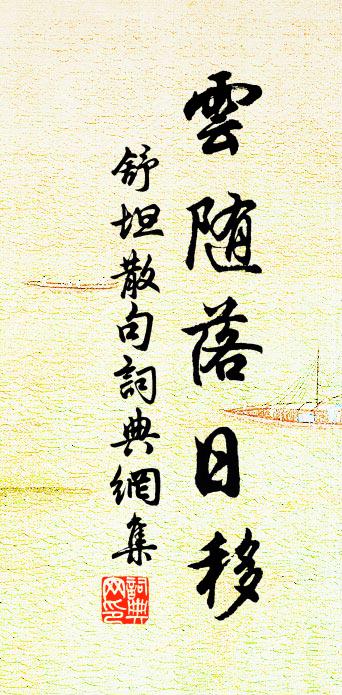 雲随落日移
舒坦散句詞典網集
詞典網印